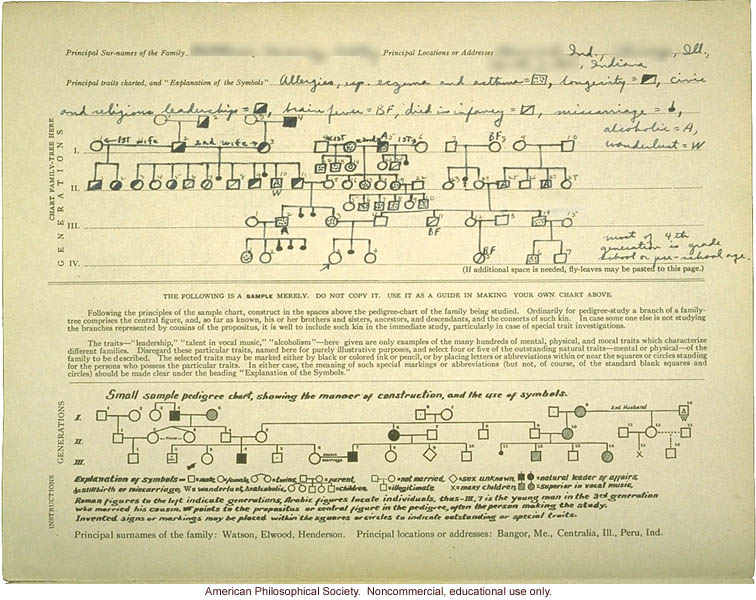 Principal Sur-names of the Family
Principal Locations or Addresses
Ind., Ill.,
, Indiana
Principal traits charted, and "Explanation of the Symbols" Allergies, esp. eczema and asthma = , longevity = , civic
and religious leadership = , brain fever = BF, died in infancy = , miscarriage = ,
alcoholic = A,
wanderlust = W
CHART FAMILY-TREE HERE
GENERATIONS
1st wife
2nd wife
I.
II.
III.
IV.
BF
A
W
A
BF
BF
most of 4th
generation is grade
school or pre-school age.
(If additional space is needed, fly-leaves may be pasted to this page.)
THE FOLLOWING IS A SAMPLE MERELY. DO NOT COPY IT. USE IT AS A GUIDE IN MAKING YOUR OWN CHART ABOVE.
Following the principles of the sample chart, construct in the spaces above the pedigree-chart of the family being studied. Ordinarily for pedigree-study a branch of a family-
tree comprises the central figure, and, so far as known, his or her brothers and sisters, ancestors, and descendants, and the consorts of such kin. In case some one is not studying
the branches represented by cousins of the propositus, it is well to include such kin in the immediate study, particularly in case of special trait investigations.
The traits—"leadership," "talent in vocal music," "alcoholism"—here given are only examples of the many hundreds of mental, physical, and moral traits which characterize
different families. Disregard these particular traits, named here for purely illustrative purposes, and select four or five of the outstanding natural traits—mental or physical—of the
family to be described. The selected traits may be marked either by black or colored ink or pencil, or by placing letters or abbreviations within or near the squares or circles standing
for the persons who possess the particular traits. In either case, the meaning of such special markings or abbreviations (but not, of course, of the standard blank squares and
circles) should be made clear under the heading "Explanation of the Symbols."
Small sample pedigree chart, showing the manner of construction, and the use of symbols.
GENERATIONS
I.
II.
III.
2nd Husband
A
W
Twins
Cousin
marriage
INSTRUCTIONS
Explanation of symbols— =male, =female, =twins, =parent, =not married, =sex unknown, =natural leader of affairs,
=stillbirth or miscarriage, W=wanderlust, A=alcoholic, =children, =illegitimate, X=many children, =superior in vocal music,
Roman figures to the left indicate generations, Arabic figures locate individuals, thus—III, 7 is the young man in the 3rd generation
who married his cousin. points to the propositus or central figure in the pedigree, often the person making the study.
Invented signs or markings may be placed within the squares or circles to indicate outstanding or special traits.
Principal surnames of the family: Watson, Elwood, Henderson. Principal locations or addresses: Bangor, Me., Centralia, Ill., Peru, Ind.
American Philosophical Society. Noncommercial, educational use only.